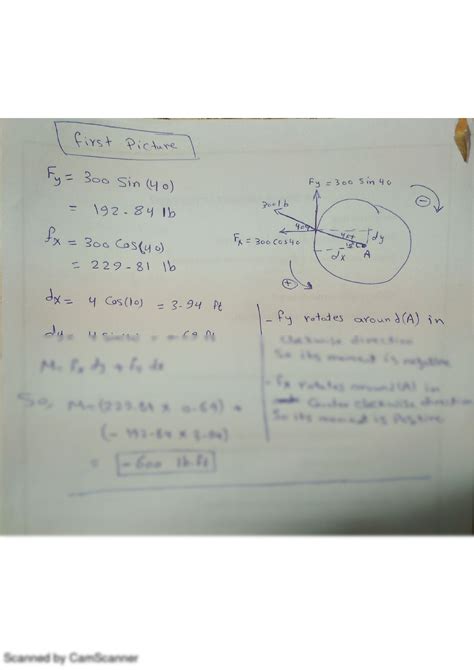 First Picture
Fy = 300 Sin (40)
= 192.84 lb
fx = 300 Cos(40)
= 229.81 lb
dx = 4 Cos(10) = 3.94 ft
dy = 4 sin(10) = 0.69 ft
M = Fx dy + Fy dx
So, M = (229.81 x 0.69) +
(- 192.84 x 3.94)
= -600 lb.ft
Fy = 300 Sin 40
300 lb
-
40°
Fx = 300 cos 40
4 ft
dy
A
dx
+
- fy rotates around (A) in
clockwise direction
So its moment is negative
- fx rotates around (A) in
Counter clockwise direction
So its moment is Positive
Scanned by CamScanner